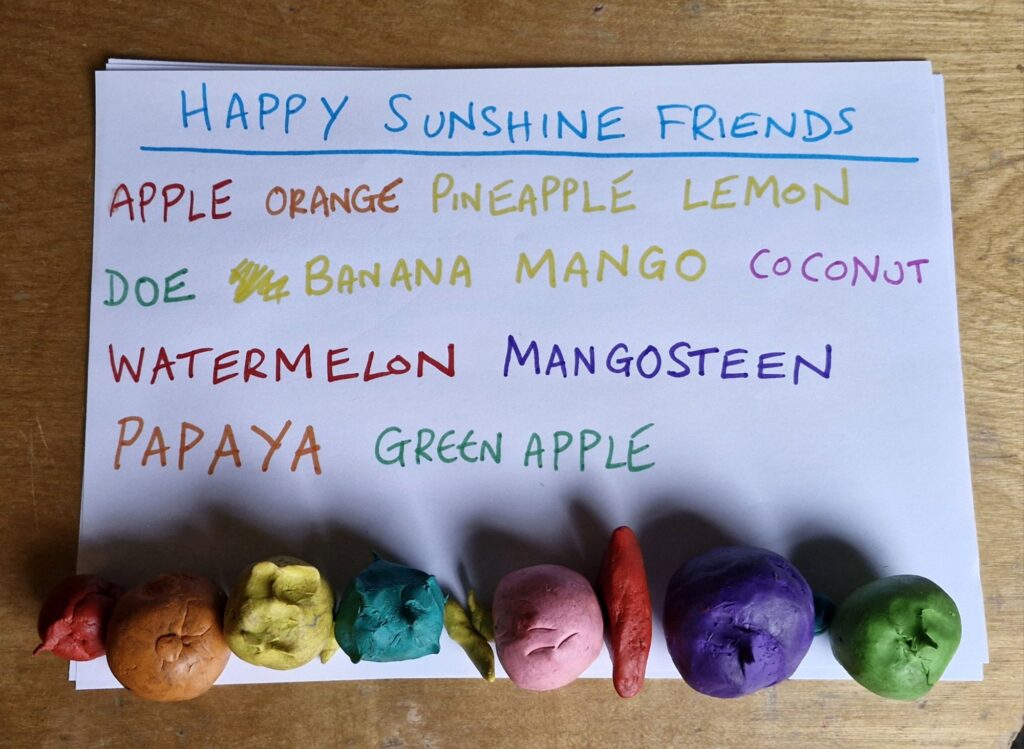 HAPPY SUNSHINE FRIENDS
APPLE ORANGE PINEAPPLE LEMON
DOE BANANA MANGO COCONUT
WATERMELON MANGOSTEEN
PAPAYA GREEN APPLE